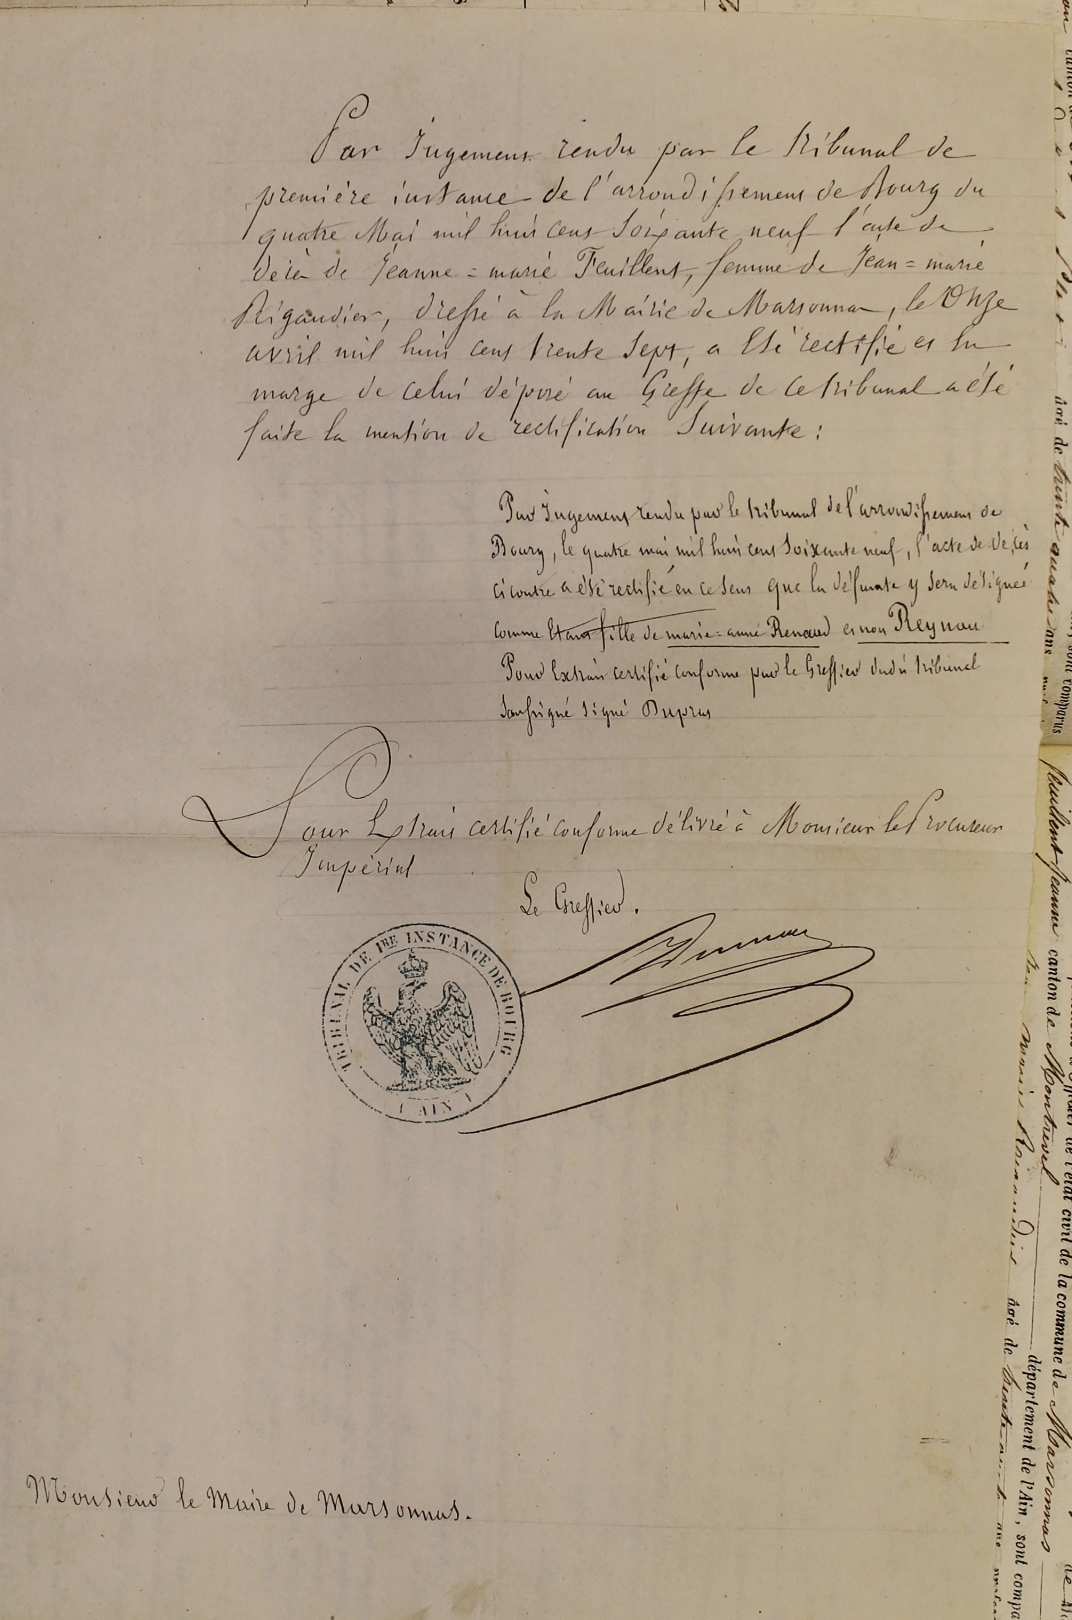 Par Jugement rendu par le tribunal de
première instance de l'arrondissement de Bourg du
quatre Mai mil huit cent soixante neuf l'acte de
décès de Jeanne=marie Feuillent, femme de Jean=marie
Rigaudier, dressé à la Mairie de Marsonnas, le Onze
avril mil huit cent trente sept, a été rectifié et en
marge de celui déposé au Greffe de ce tribunal a été
faite la mention de rectification suivante :
Par Jugement rendu par le tribunal de l'arrondissement de
Bourg, le quatre mai mil huit cent soixante neuf, l'acte de décès
ci contre a été rectifié en ce sens que la défunte y sera désignée
comme étant fille de marie=anne Renaud et non Reynau
Pour Extrait certifié conforme par le Greffier dudit tribunal
soussigné signé Dupras
Pour Extrait certifié conforme délivré à Monsieur le Procureur
Impérial
Le Greffier.
TRIBUNAL DE 1RE INSTANCE DE BOURG
( AIN )
Monsieur le Maire de Marsonnas.
sont comparus
âgé de trente
feuillent Jeanne canton de Montrevel
de l'état civil de la commune de Marsonnas
département de l'Ain, sont compa
âgé de